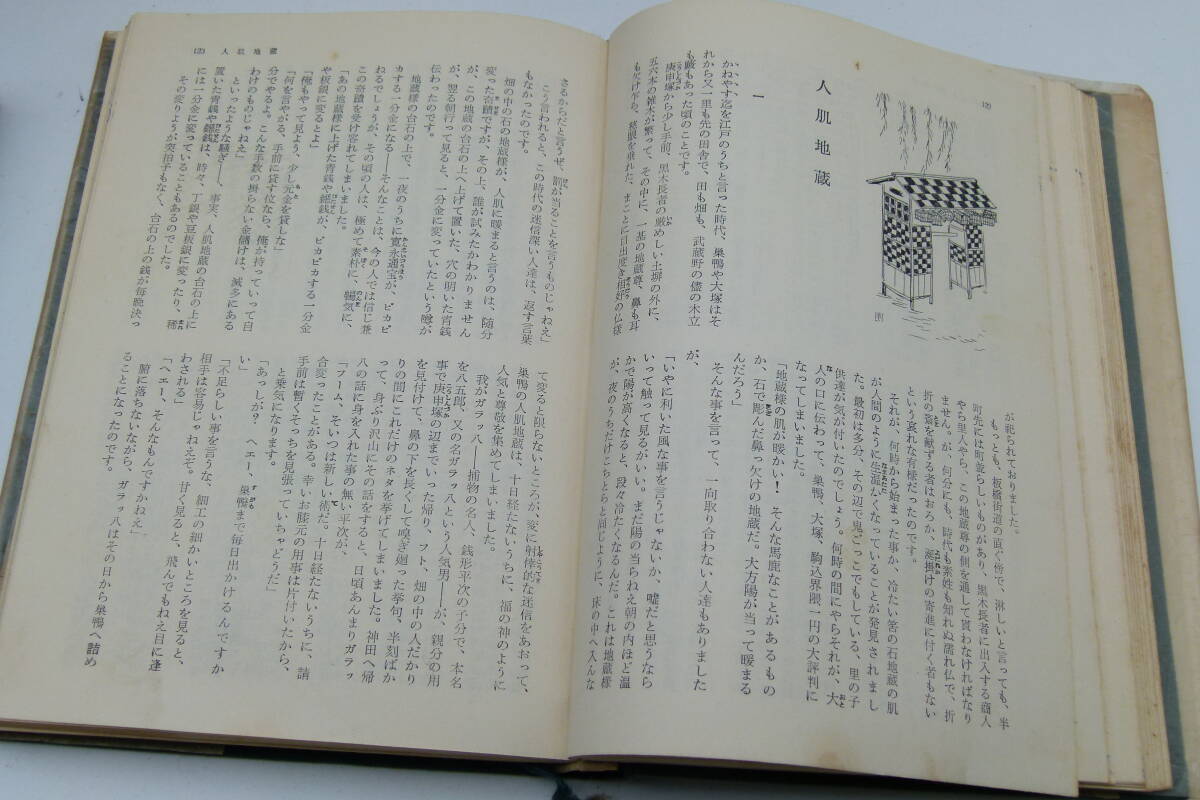 人肌地蔵
一
かねやす迄を江戸のうちと言った時代、巣鴨や大塚はそ
れから又一里も先の田舎で、田も畑も、武蔵野の儘の木立
も藪もあった頃のことです。
庚申塚から少し手前、黒木長者の厳めしい土塀の外に、
五六本の雑木が繁って、その中に、一基の地蔵尊、鼻も耳
も欠け乍ら、慈眼を垂れた、まことに目出度き相好の仏様
が祀られておりました。
もっとも、板橋街道の直ぐ傍で、淋しいと言っても、半
町先には町並らしいものがあり、黒木長者に出入する商人
やら里人やら、この地蔵尊の側を通して貰わなければなり
ません。が、何分にも、時代も素姓も知れぬ濡れ仏で、折
折の斎を献ずる者はおろか、涎掛けの寄進に付く者もない
という哀れな有様だったのです。
それが、何時から始まった事か、冷たい筈の石地蔵の肌
が人間のように生温かくなっていることが発見されまし
た。最初は多分、その辺で鬼ごっこでもしている、里の子
供達が気が付いたのでしょう。何時の間にやらそれが、大
人の口に伝わって、巣鴨、大塚、駒込界隈一円の大評判に
なってしまいました。
「地蔵様の肌が暖かい！そんな馬鹿なことがあるもの
か、石で彫んだ鼻っ欠けの地蔵だ。大方陽が当って暖まる
んだろう」
そんな事を言って、一向取り合わない人達もありました
が、
「いやに利いた風な事を言うじゃないか、嘘だと思うなら
いって触って見るがいい。まだ陽の当らねえ朝の内ほど温
かで陽が高くなると、段々冷たくなるんだ。これは地蔵様
が、夜のうちだけこちとらと同じように、床の中へ入んな
人肌地蔵
さるからだと言うぜ、罰が当ることを言うものじゃねえ」
こう言われると、この時代の迷信深い人達は、返す言葉
もなかったのです。
畑の中の石の地蔵様が、人肌に暖まると言うのは、随分
変った奇蹟ですが、その上、誰が試みたかわかりません
が、この地蔵の台石の上へ上げて置いた、穴の明いた青銭
が、翌る朝行って見ると、一分金に変っていたという噂が
伝わったのです。
地蔵様の台石の上で、一夜のうちに寛永通宝が、ピカピ
カする一分金になる——そんなことは、今の人では信じ兼
ねるでしょうが、その頃の人は、極めて素朴に、暢気に、
この奇蹟を受け容れてしまいました。
「あの地蔵様に上げた青銭や鐚銭が、ピカピカする一分金
や板銀に変るとよ」
「俺もやって見よう、少し元金を貸しな」
「何を言やがる、手前に貸す位なら、俺が持っていって自
分でやるよ。こんな手数の掛らない金儲けは、滅多にある
わけのものじゃねえ」
といったような騒ぎ——、事実、人肌地蔵の台石の上に
置いた青銭や鐚銭は、時々、丁銀や豆板銀に変ったり、稀
には一分金に変っていることもあるのでした。
その変りようが突拍子もなく、台石の上の銭が毎晩決っ
て変ると限らないところが、変に射倖的な迷信をあおって、
巣鴨の人肌地蔵は、十日経たないうちに、福の神のように
人気と尊敬を集めてしまいました。
我がガラッ八——捕物の名人、銭形平次の子分で、本名
を八五郎、又の名ガラッ八という人気男——が、親分の用
事で庚申塚の辺までいった帰り、フト、畑の中の人だかり
を見付けて、鼻の下を長くして嗅ぎ廻った挙句、半刻ばか
りの間にこれだけのネタを挙げてしまいました。神田へ帰
って、身ぶり沢山にその話をすると、日頃あんまりガラッ
八の話に身を入れた事の無い平次が、
「フーム、そいつは新しい術だ。十日経たないうちに、請
合変ったことがある。幸いお膝元の用事は片付いたから、
手前は暫くそっちを見張っていちゃどうだ」
と乗気になります。
「あっしが？ ヘエー、巣鴨まで毎日出かけるんですか
い」
「不足らしい事を言うな、細工の細かいところを見ると、
相手は容易じゃねえぞ。甘く見ると、飛んでもねえ目に逢
わされる」
「ヘエー、そんなもんですかねえ」
腑に落ちないながら、ガラッ八はその日から巣鴨へ詰め
ることになったのです。